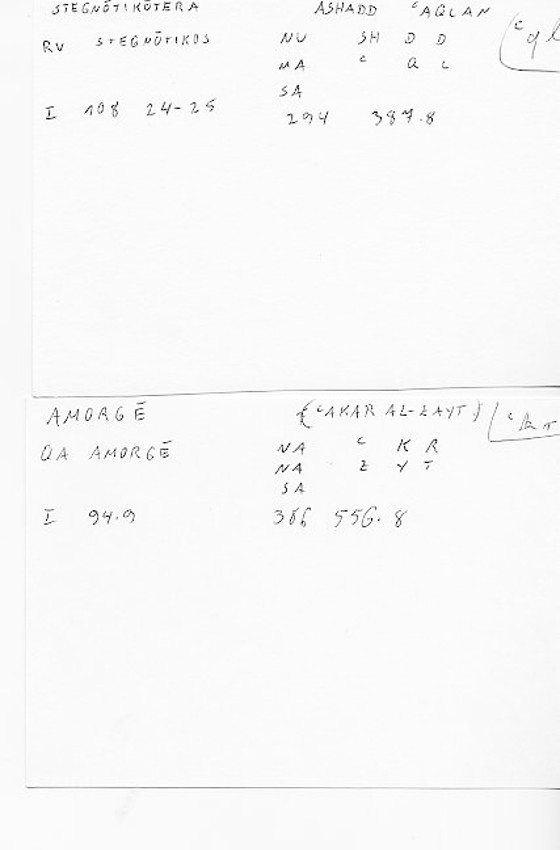 STEGNŌTIKŌTERA ASHADD ᶜAQLAN
RV STEGNŌTIKOS NU SH D D (ᶜql
MA ᶜ Q L
SA
I 108 24-25 294 387.8
AMORGĒ ᶜAKAR AL-ZAYT
QA AMORGĒ NA ᶜ K R
NA Z Y T
SA
I 94.9 386 556.8